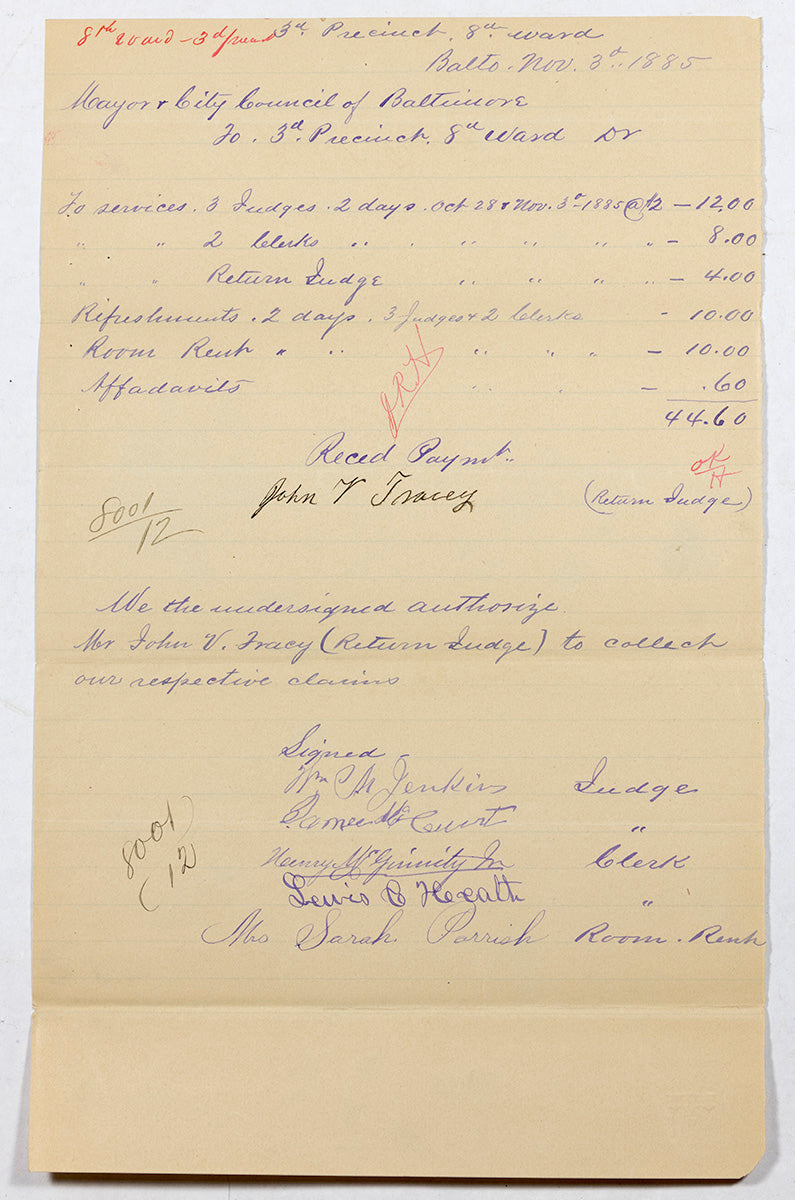 8th Ward - 3d
3d. Precinct. 8th Ward
Balto. Nov. 3d. 1885
Mayor & City Council of Baltimore
To. 3d. Precinct. 8th Ward Dr
To services. 3 Judges. 2 days. Oct 28 & Nov. 3d - 1885 @ $2 - 12.00
" " 2 Clerks " " " " " " - 8.00
" " Return Judge " " " " - 4.00
Refreshments. 2 days. 3 Judges & 2 Clerks - 10.00
Room Rent " " " " " - 10.00
Affadavits " " - .60
44.60
JRH
Reced Paymt.
OK
H
John V Tracey (Return Judge)
8001/12
We the undersigned authorize.
Mr John V. Tracy (Return Judge) to collect
our respective claims
Signed -
Wm C M Jenkins Judge
James Mc Court "
Henry McGinnity Jr Clerk
8001
(12
Lewis C Hexalth "
Mrs Sarah Parrish Room. Rent